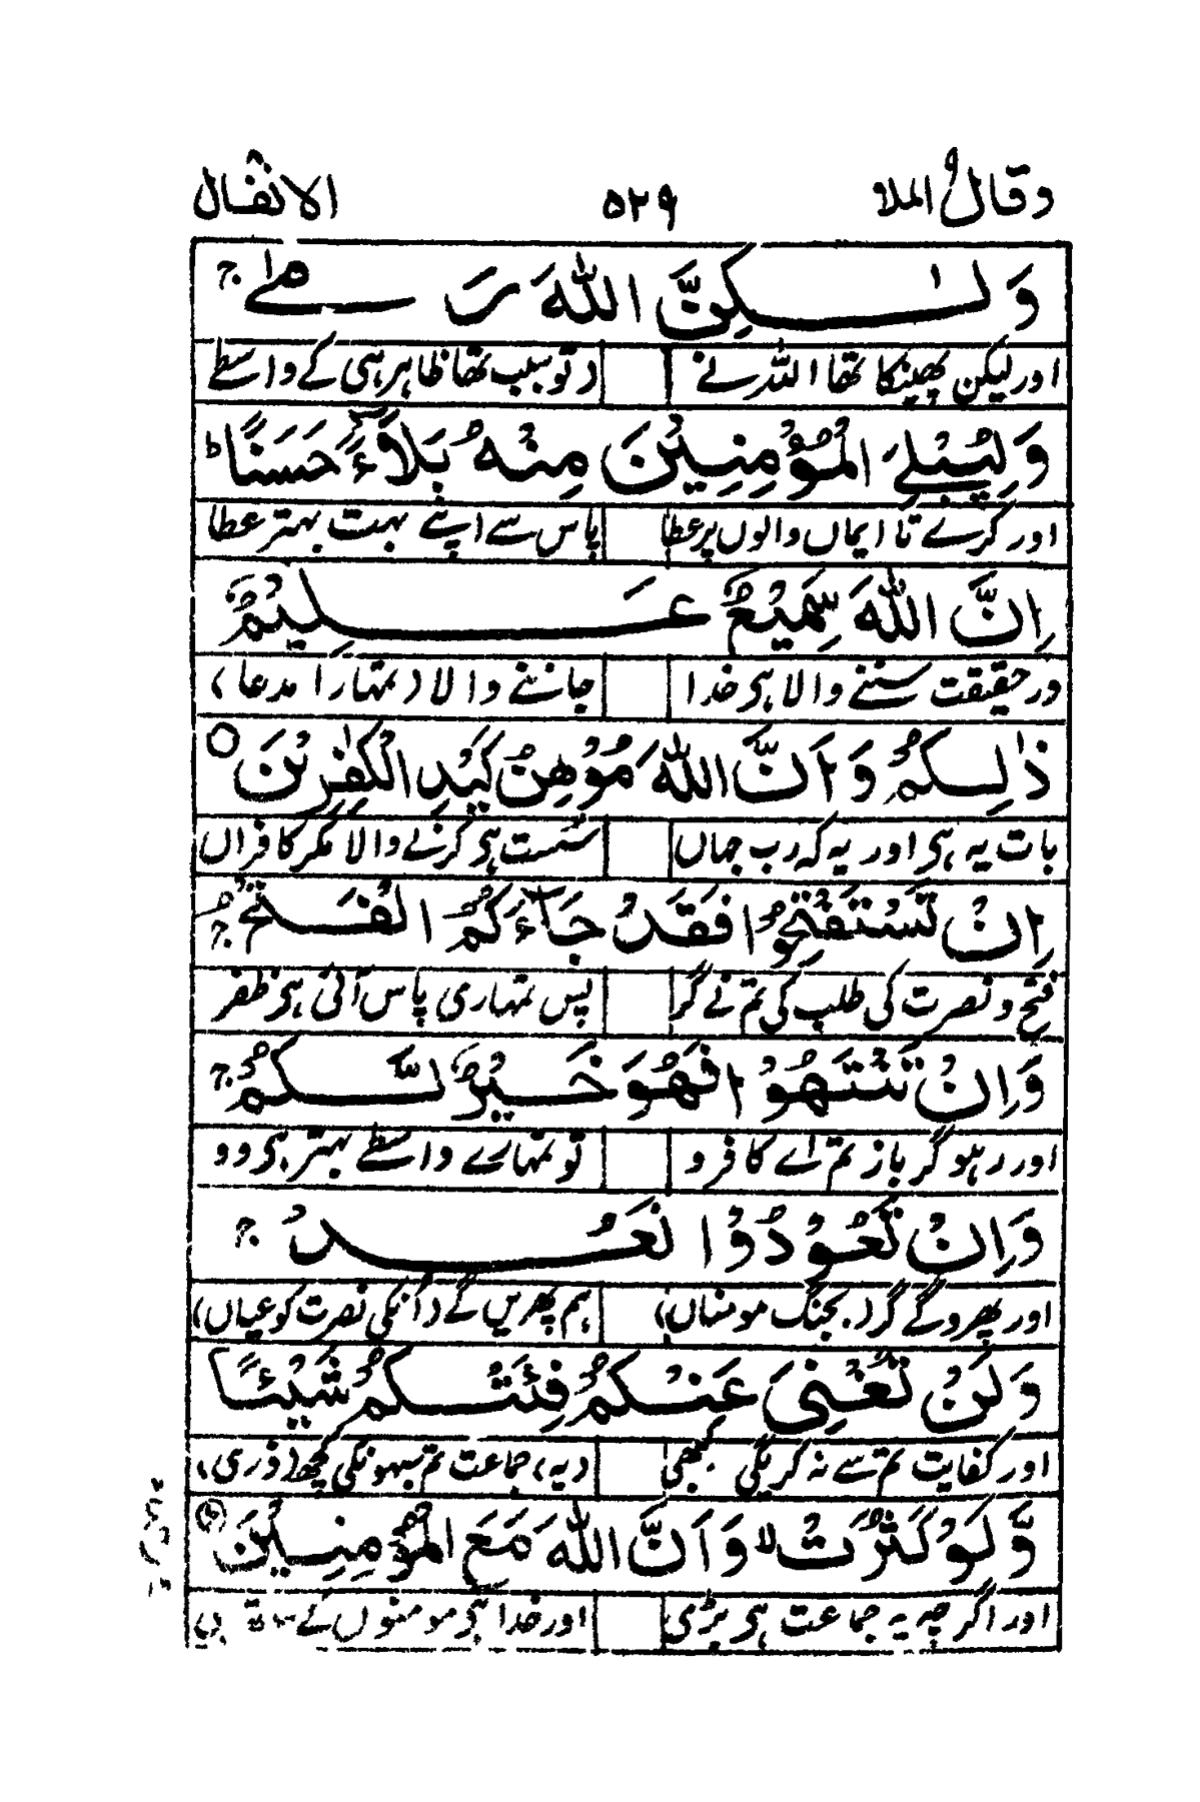 وقال الملا ۵۲۹ الانفال
وَلٰكِنَّ اللّٰهَ رَمٰى ج
اور لیکن پھینکا تھا اللہ نے (تو سبب تھا ظاہر ہی کے واسطے
وَلِيُبْلِيَ الْمُؤْمِنِيْنَ مِنْهُ بَلَآءً حَسَنًا ط
اور کرے تا ایماں والوں پر عطا پاس سے اپنے بہت بہتر عطا
اِنَّ اللّٰهَ سَمِيْعٌ عَلِيْمٌ
در حقیقت سننے والا ہی خدا جاننے والا (تمہارا مدعا)
ذٰلِكُمْ وَاَنَّ اللّٰهَ مُوْهِنُ كَيْدِ الْكٰفِرِيْنَ ○
بات یہ ہی اور یہ کہ رب جہاں سست ہی کرنے والا مکر کافراں
اِنْ تَسْتَفْتِحُوْا فَقَدْ جَآءَكُمُ الْفَتْحُ ج
فتح و نصرت کی طلب کی تم نے گر پس تمہاری پاس آئی ہی ظفر
وَاِنْ تَنْتَهُوْا فَهُوَ خَيْرٌ لَّكُمْ ج
اور رہو گر باز تم اے کافرو تو تمہارے واسطے بہتر ہی وو
وَاِنْ تَعُوْدُوْا نَعُدْ ج
اور پھروگے گر (بجنگ مومناں) ہم پھریں گے (انکی نصرت کو عیاں)
وَلَنْ تُغْنِيَ عَنْكُمْ فِئَتُكُمْ شَيْئًا
اور کفایت تم سے نہ کریگی کبھی (یہ) جماعت تم سبھونکی کچھ (ذری)
وَّلَوْ كَثُرَتْ لا وَاَنَّ اللّٰهَ مَعَ الْمُؤْمِنِيْنَ
اور اگر چہ یہ جماعت ہی بڑی اور خدا ہی مومنوں کے